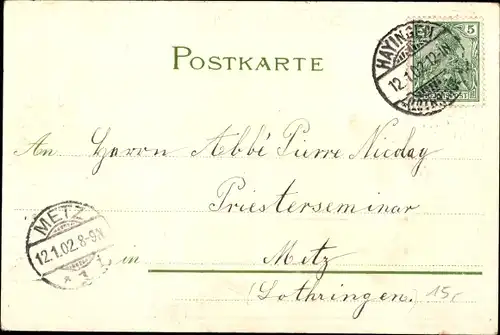 POSTKARTE
5
HAYINGEN
12.1.02.12-1N
An Herrn Abbé Pierre Nicolay
Priesterseminar
in Metz
(Lothringen.)
METZ
12.1.02.8-9N
* 3
15,